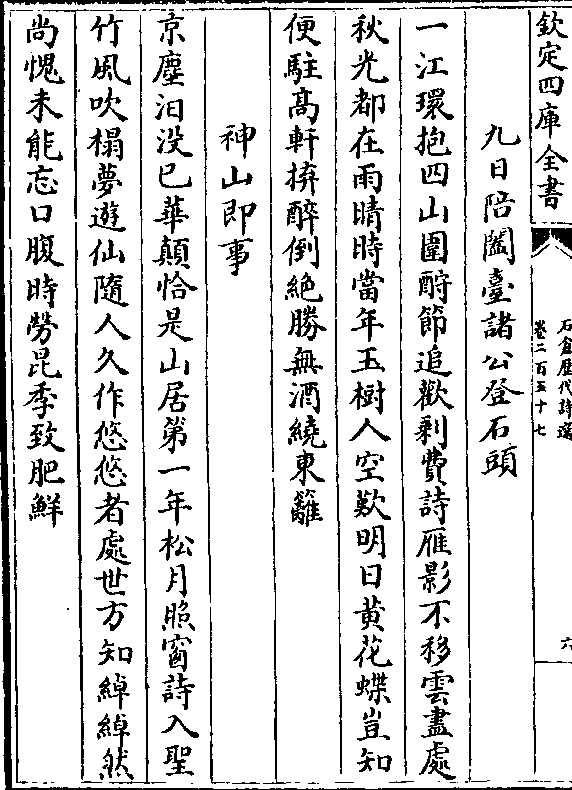 欽定四庫全書
石倉歷代詩選
卷二百五十七
六
九日陪闔臺諸公登石頭
一江環抱四山圍酹節追歡剩費詩雁影不移雲盡處
秋光都在雨晴時當年玉樹人空歎明日黃花蝶豈知
便駐髙軒拚醉倒絶勝無酒繞東籬
神山即事
京塵汨没已華顛恰是山居第一年松月照窗詩入聖
竹風吹榻夢遊仙隨人久作悠悠者處世方知綽綽然
尚愧未能忘口腹時勞昆季致肥鮮